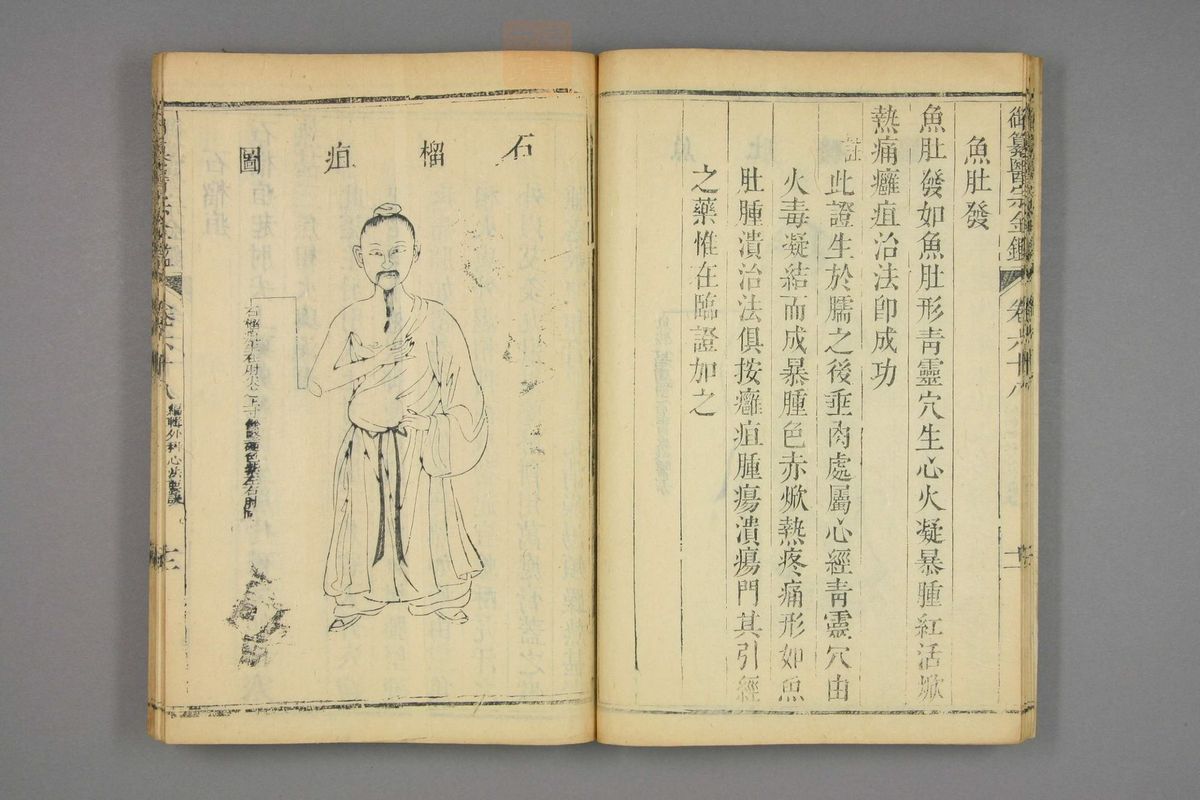 御纂醫宗金鑑 卷六十八
魚肚發
魚肚發如魚肚形青靈穴生心火凝暴腫紅活焮
熱痛癰疽治法卽成功
註此證生於臑之後垂肉處屬心經青靈穴由
火毒凝結而成暴腫色赤焮熱疼痛形如魚
肚腫潰治法俱按癰疽腫瘍潰瘍門其引經
之藥惟在臨證加之
石榴疽圖
石榴疽生在肘尖上一寸
卷六十八 編輯外科心法要訣